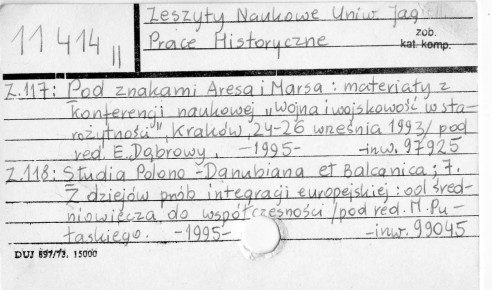 11 414 II
Zeszyty Naukowe Uniw. Jagiell
Prace Historyczne
zob.
kat. komp.
Z.117: Pod znakami Aresa i Marsa : materiały z
konferencji naukowej „Wojna i wojskowość w sta-
rożytności", Kraków, 24-26 września 1993 / pod
red. E. Dąbrowy. -1995- -inw. 97925
Z.118: Studia Polono-Danubiana et Balcanica ; 7.
Z dziejów prób integracji europejskiej : od śred-
niowiecza do współczesności / pod red. M. Pu-
łaskiego. -1995- -inw. 99045
DUJ 697/73. 15000